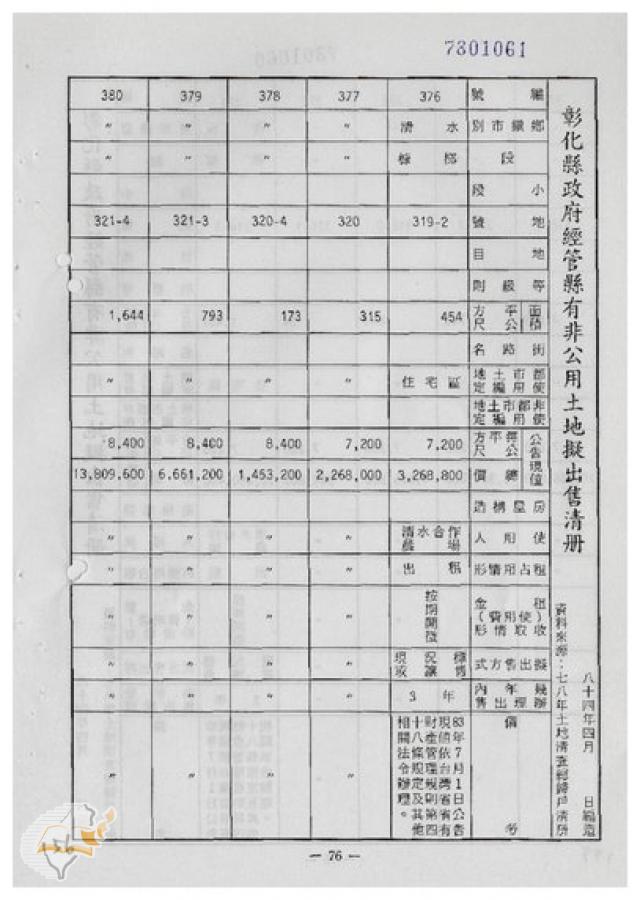 7301061
彰化縣政府經管縣有非公用土地擬出售清册
八十四年四月　日編造
資料來源：七八年土地清查總歸戶清册
編號 376 377 378 379 380
鄉鎮市別 清水 〃 〃 〃 〃
段 〃 〃 〃 〃
小段
地號 319-2 320 320-4 321-3 321-4
地目
等級則
面積 平方公尺 454 315 173 793 1,644
街路名
都市土地使用編定 住宅區 〃 〃 〃 〃
非都市土地使用編定
公告現值 每平方公尺 7,200 7,200 8,400 8,400 8,400
總價 3,268,800 2,268,000 1,453,200 6,661,200 13,809,600
房屋構造
使用人 清水合作農場 〃 〃 〃 〃
租占用情形 出租 〃 〃 〃 〃
租金（使用費收取情形） 按期開徵 〃 〃 〃 〃
擬出售方式 現況標售 〃 〃 〃 〃
幾年內辦理出售 3年 〃 〃 〃 〃
備考 83年7月1日公告現值依台灣省省有財產管理規則第四十八條規定及其他相關法令辦理。 〃 〃 〃 〃
— 76 —
156